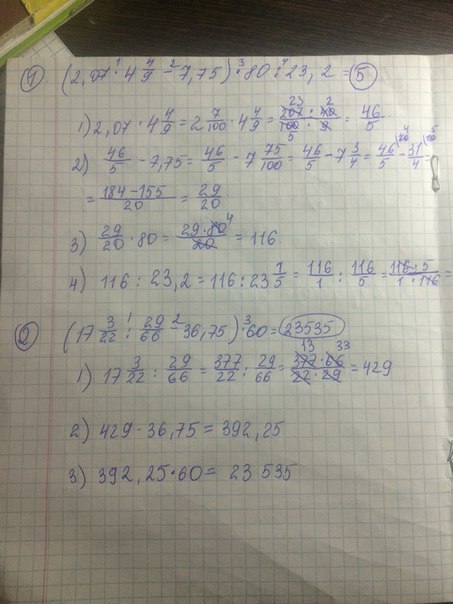 1 (2,07 · 4 4/9 - 7,75) · 80 : 23,2 = 5
1) 2,07 · 4 4/9 = 2 7/100 · 4 4/9 = 207 · 40 / 100 · 9 = 46/5
2) 46/5 - 7,75 = 46/5 - 7 75/100 = 46/5 - 7 3/4 = 46/5 - 31/4 =
= 184 - 155 / 20 = 29/20
3) 29/20 · 80 = 29 · 80 / 20 = 116
4) 116 : 23,2 = 116 : 23 1/5 = 116/1 : 116/5 = 116 · 5 / 1 · 116 =
2 (17 3/22 : 29/66 - 36,75) · 60 = 23535
1) 17 3/22 : 29/66 = 377/22 : 29/66 = 377 · 66 / 22 · 29 = 429
2) 429 - 36,75 = 392,25
3) 392,25 · 60 = 23 535